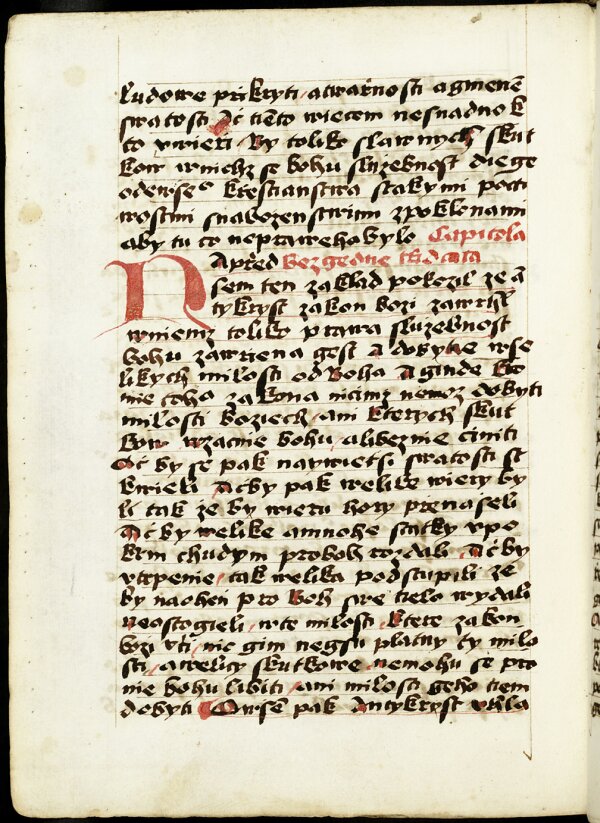 ludowe přikryti / a twařnosti a gmenē
swatosti Ač tiěto wiecem nesnadno k
to vwieři / By toliko slawnych skut
kow w nichz se bohu služebnost diege
ode wse° křestianstwa s takymi pocti
wostmi s nabozenstwimi z poklonami
aby tu co neprawe ho bylo Capitola
Napřed Bez gedne třidcata
sem ten zaklad polozil ze ā
tykryst zakon bozi zawrhl
w niemz toliko prawa služebnost
bohu zawřena gest A dobytie wse
likych milosti od Boha A ginde kto
mie coho zakona nicimz nemoz dobyti
milosti boziech / ani kterych skut
kow wzacnie bohu / a libeznie činiti
Ač by se pak naywietsi swatosti st
kwieli / Ač by pak welike wiery by
li tak že by wieru hory přenaseli
Ač by welike a mnohe statky v po
kim chudym pro boh rozdali / Ač by
vtrpenie / tak welika podstupili ze
by na ohen pro Boh swe tielo wydali
neostogieli / w te milosti / Ktere zakon
bozi vči / nic gim negsu platny ty milo
sti / a welicy skutkowe / nemohu se pro
nie bohu libiti / ani milosti geho tiem
dobyti Owsē pak Antykryst vhla